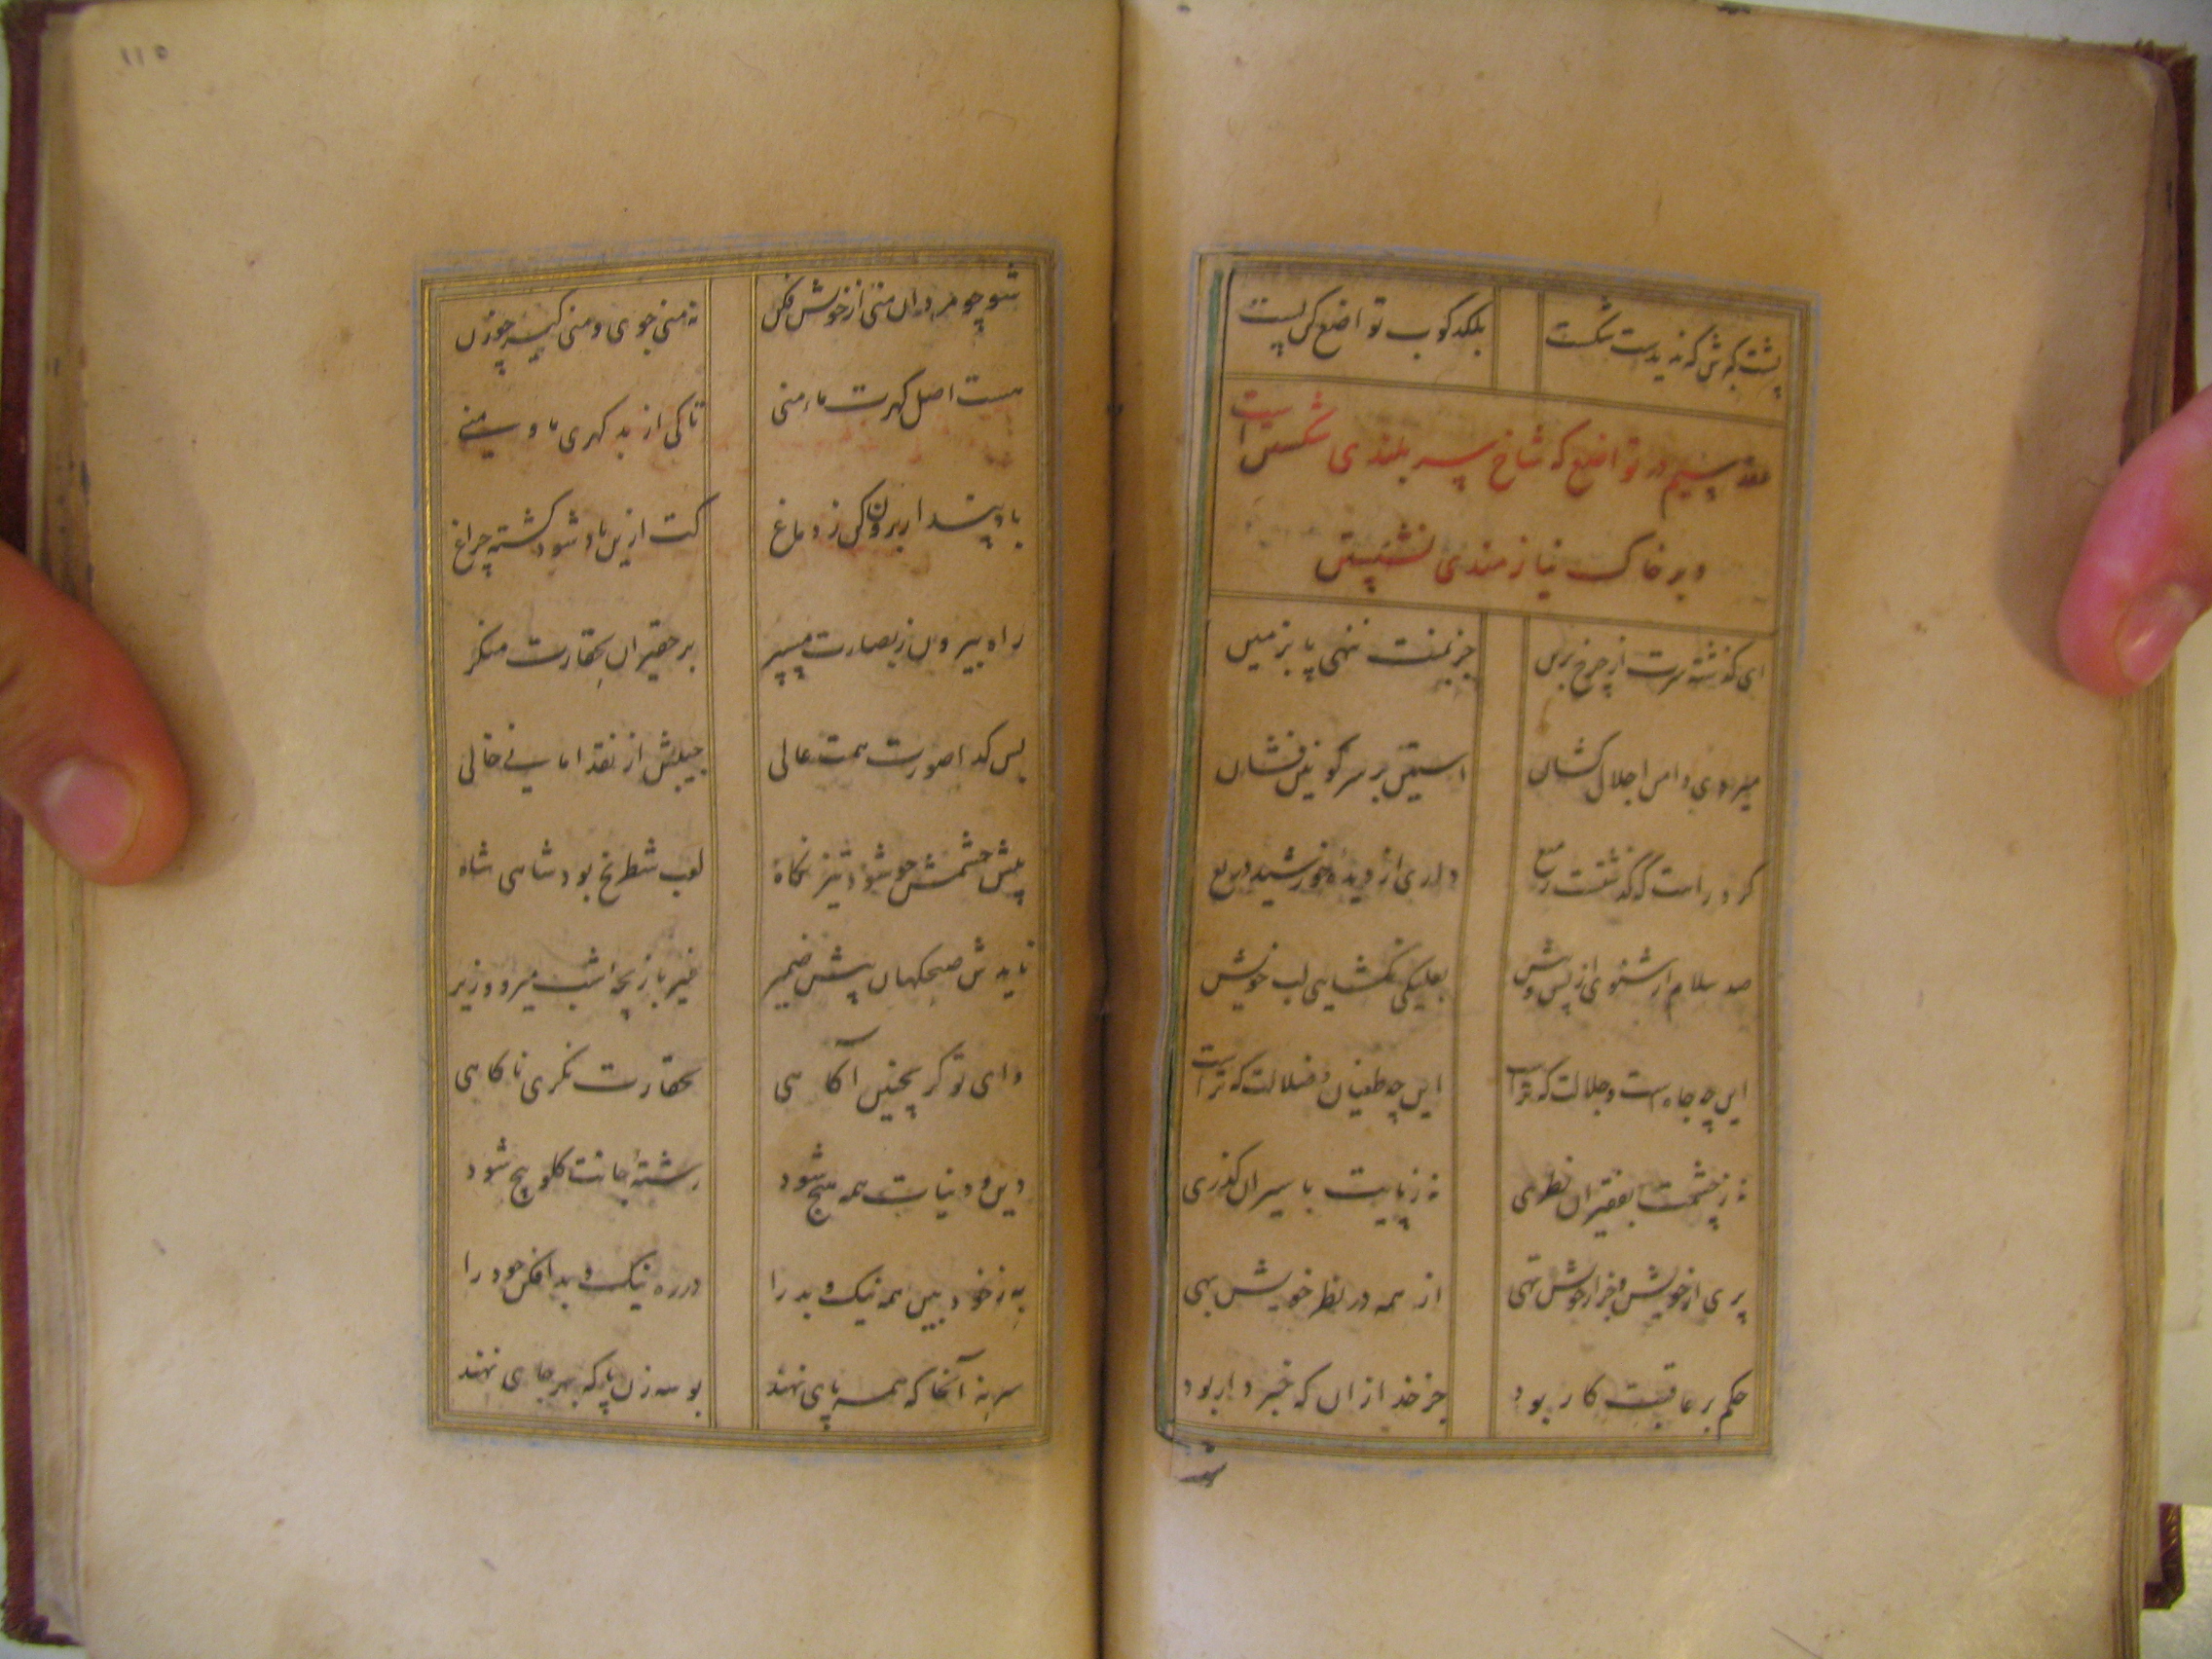 پشت کبرش که ندیدست شکست بلکدکوب تواضع کن پست
عقد سیم در تواضع که شاخ سربلندی شکستن است
و بر خاک نیازمندی نشستن
ای گذشته سرت از چرخ برین جز بمنت ننهی پا بزمین
میروی دامن اجلال کشان استین بر سر کونین فشان
کرد راهت که گذشتست رفیع داری از دیده خورشید دریع
صد سلام ار شنوی از پس و پیش بعلیکی نکشایی لب خویش
این چه جاهست و جلالت که تراست این چه طغیان و ضلالت که تراست
نه ز چشمت بفقیران نظری نه ز پایت باسیران کذری
پری از خویش و جز از خویش تهی از همه در نظر خویش بهی
حکم بر عاقبت کار بود جز خدا زان که خبردار بود
شو
شو چو مردان منی از خویش فکن نه منی جوی و منی کیر چو زن
هست اصل کهرت ماء منی تا کی از بد کهری ما و منی
باد پندار برون کن ز دماغ کت ازین باد شود کشته چراغ
راه بیرون ز بصارت مسپر بر حقیران بحقارت منکر
بس کدا صورت همت عالی جیبش از نقد امانی خالی
پیش چشمش چو شود تیز نکاه لعب شطرنج بود شاهی شاه
نایدش صبحکهان پیش ضمیر غیر بازیچه شب میر و وزیر
وای تو کر بچنین آکاهی بحقارت نکری ناکاهی
دین و دنیات همه هیچ شود رشته جانت کلو پیچ شود
به ز خود بین همه نیک و بد را در ره نیک و بد افکن خود را
سر بنه آنجا که همه پای نهند بوسه زن پا که بهر جای نهند
۱۱۵